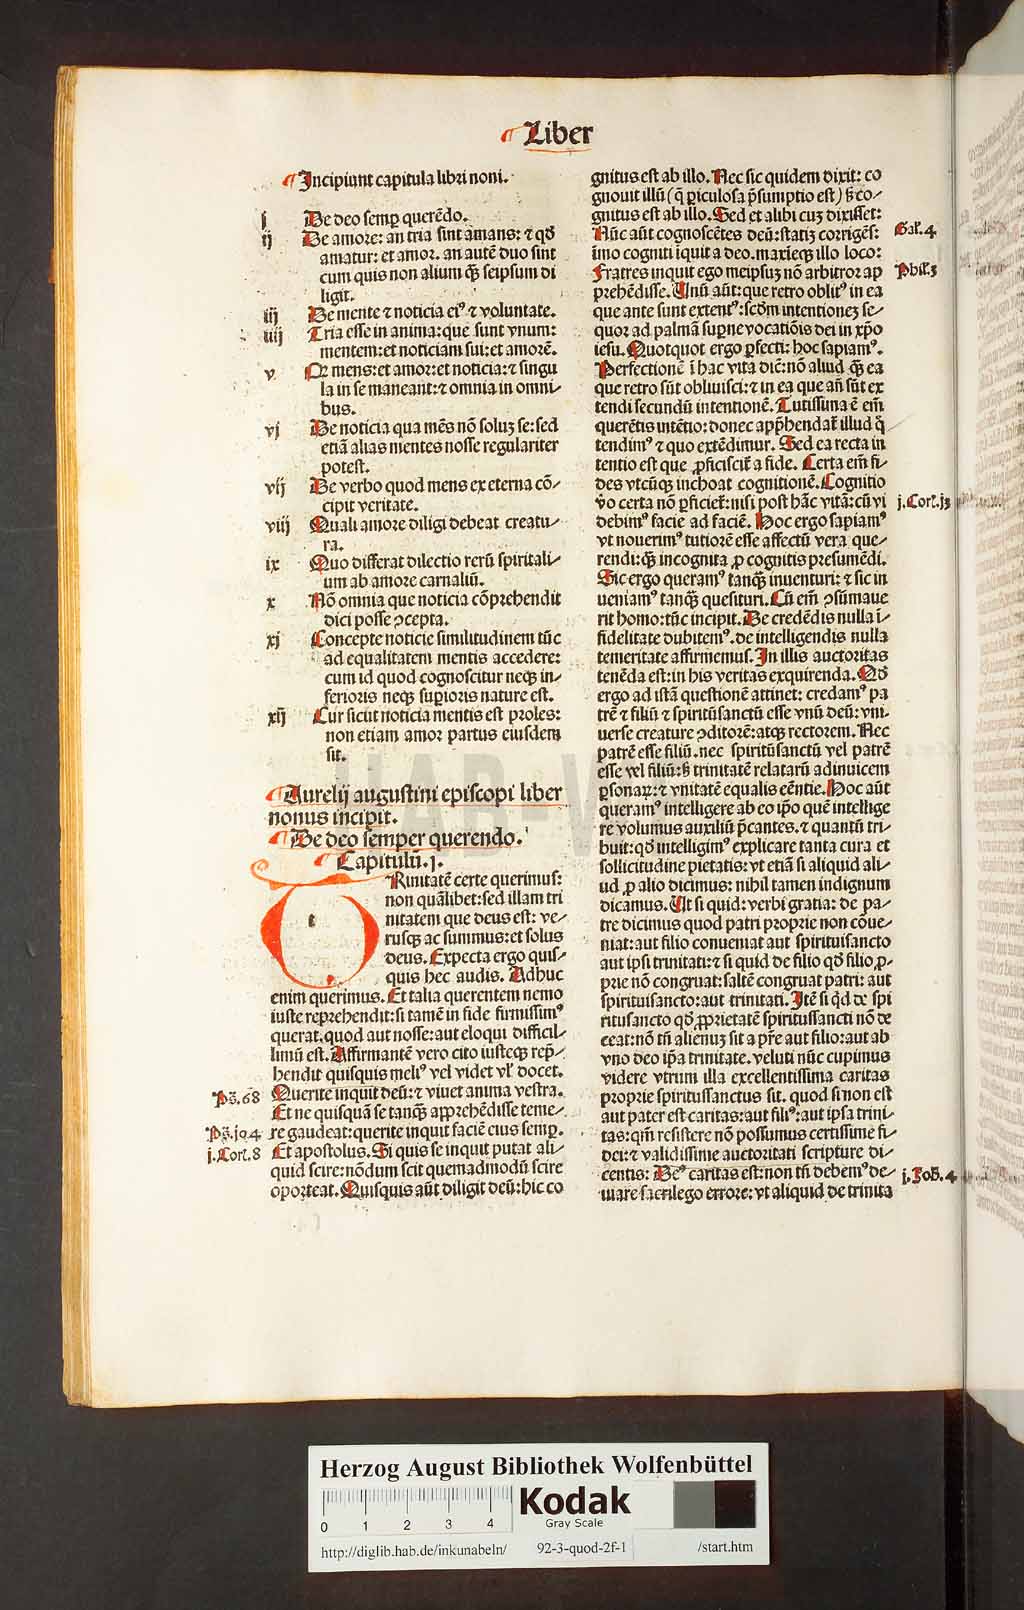 Liber
Incipiunt capitula libri noni.
j De deo semꝑ querēdo.
ij De amore: an tria sint amans: ⁊ qd̄
amatur: et amor. an autē duo sint
cum quis non alium qꝫ̄ seipsum di
ligit.
iij De mente ⁊ noticia eiꝰ ⁊ voluntate.
iiij Tria esse in anima: que sunt vnum:
mentem: et noticiam sui: et amorē.
v Qꝛ mens: et amor: et noticia: ⁊ singu
la in se maneant: ⁊ omnia in omni⸗
bus.
vj De noticia qua mēs nō soluꝫ se: sed
etiā alias mentes nosse regulariter
potest.
vij De verbo quod mens ex eterna cō⸗
cipit veritate.
viij Quali amore diligi debeat creatu⸗
ra.
ix Quo differat dilectio rerū spiritali⸗
um ab amore carnaliū.
x Nō omnia que noticia cōprehendit
dici posse ꝯcepta.
xj Concepte noticie similitudinem tūc
ad equalitatem mentis accedere:
cum id quod cognoscitur neqꝫ in⸗
ferioris neqꝫ suꝑioris nature est.
xij Cur sicut noticia mentis est proles:
non etiam amor partus eiusdem
sit.
Aurelij augustini episcopi liber
nonus incipit.
De deo semper querendo.
Capitulū.j.
TRinitatē certe querimus:
non quālibet: sed illam tri
nitatem que deus est: ve⸗
rusqꝫ ac summus: et solus
deus. Expecta ergo quis⸗
quis hec audis. Adhuc
enim querimus. Et talia querentem nemo
iuste reprehendit: si tamē in fide firmissimꝰ
querat. quod aut nosse: aut eloqui difficil⸗
limū est. Affirmantē vero cito iusteqꝫ rep̄⸗
hendit quisquis meliꝰ vel videt vl̓ docet.
Ps̄.68 Querite inquit deū: ⁊ viuet anima vestra.
Et ne quisquā se tanqꝫ̄ apprehēdisse teme⸗
Ps̄.104 re gaudeat: querite inquit faciē eius semꝑ.
j.Corī.8 Et apostolus. Si quis se inquit putat ali⸗
quid scire: nōdum scit quemadmodū scire
oporteat. Quisquis aūt diligit deū: hic co
gnitus est ab illo. Nec sic quidem dixit: co
gnouit illū (q̄ ꝑiculosa p̄sumptio est) sꝫ co⸗
gnitus est ab illo. Sed et alibi cuꝫ dixisset:
Nūc aūt cognoscētes deū: statiꝫ corrigēs: Gal̓.4
imo cogniti īquit a deo. maxīeqꝫ illo loco:
Fratres inquit ego meipsuꝫ nō arbitror ap Phil̓.3
prehēdisse. Unū aūt: que retro oblitꝰ in ea
que ante sunt extentꝰ: scd̄m intentioneꝫ se⸗
quor ad palmā suꝑne vocatiōis dei in xp̄o
iesu. Quotquot ergo ꝑfecti: hoc sapiamꝰ.
Perfectionē ī hac vita diē: nō aliud qꝫ̄ ea
que retro sūt obliuisci: ⁊ in ea que an̄ sūt ex
tendi secundū intentionē. Tutissima ē em̄
querētis intētio: donec app̄hendat̓ illud q̊
tendimꝰ ⁊ quo extēdimur. Sed ea recta in
tentio est que ꝓficiscit̓ a fide. Certa em̄ fi⸗
des vtcūqꝫ inchoat cognitionē. Cognitio
v̊o certa nō ꝑficiet̓: nisi post hāc vitā: cū vi j.Corī.13
debimꝰ facie ad faciē. Hoc ergo sapiamꝰ
vt nouerimꝰ tutiorē esse affectū vera que⸗
rendi: qꝫ̄ incognita ꝓ cognitis presumēdi.
Sic ergo queramꝰ tanqꝫ̄ inuenturi: ⁊ sic in
ueniamꝰ tanqꝫ̄ quesituri. Cū em̄ ꝯsūmaue
rit homo: tūc incipit. De credēdis nulla ī⸗
fidelitate dubitemꝰ. de intelligendis nulla
temeritate affirmemus. In illis auctoritas
tenēda est: in his veritas exquirenda. Qd̄
ergo ad istā questionē attinet: credamꝰ pa
trē ⁊ filiū ⁊ spiritūsanctū esse vnū deū: vni⸗
uerse creature ꝯditorē: atqꝫ rectorem. Nec
patrē esse filiū. nec spiritūsanctū vel patrē
esse vel filiū: sꝫ trinitatē relatarū adinuicem
ꝑsonaꝝ: ⁊ vnitatē equalis eēntie. Hoc aūt
queramꝰ intelligere ab eo ip̄o quē intellige
re volumus auxiliū p̄cantes. ⁊ quantū tri⸗
buit: qd̄ intelligimꝰ explicare tanta cura et
sollicitudine pietatis: vt etiā si aliquid ali⸗
ud ꝓ alio dicimus: nihil tamen indignum
dicamus. Ut si quid: verbi gratia: de pa⸗
tre dicimus quod patri proprie non cōue⸗
niat: aut filio conueniat aut spirituisancto
aut ipsi trinitati: ⁊ si quid de filio qd̄ filio ꝓ⸗
prie nō congruat: saltē congruat patri: aut
spirituisancto: aut trinitati. Itē si qd̓ de spi
ritusancto qd̄ ꝓprietatē spiritussancti nō de
ceat: nō tn̄ alienuꝫ sit a pr̄e aut filio: aut ab
vno deo ip̄a trinitate. veluti nūc cupimus
videre vtrum illa excellentissima caritas
proprie spiritussanctus sit. quod si non est
aut pater est caritas: aut filiꝰ: aut ipsa trini⸗
tas: qm̄ resistere nō possumus certissime fi⸗
dei: ⁊ validissime auctoritati scripture di⸗
centis: Deꝰ caritas est: non tn̄ debemꝰ de⸗ j.Joh̄.4
uiare sacrilego errore: vt aliquid de trinita
HAB-W
Herzog August Bibliothek Wolfenbüttel
0 1 2 3 4
Kodak
Gray Scale
http://diglib.hab.de/inkunabeln/ 92-3-quod-2f-1 /start.htm